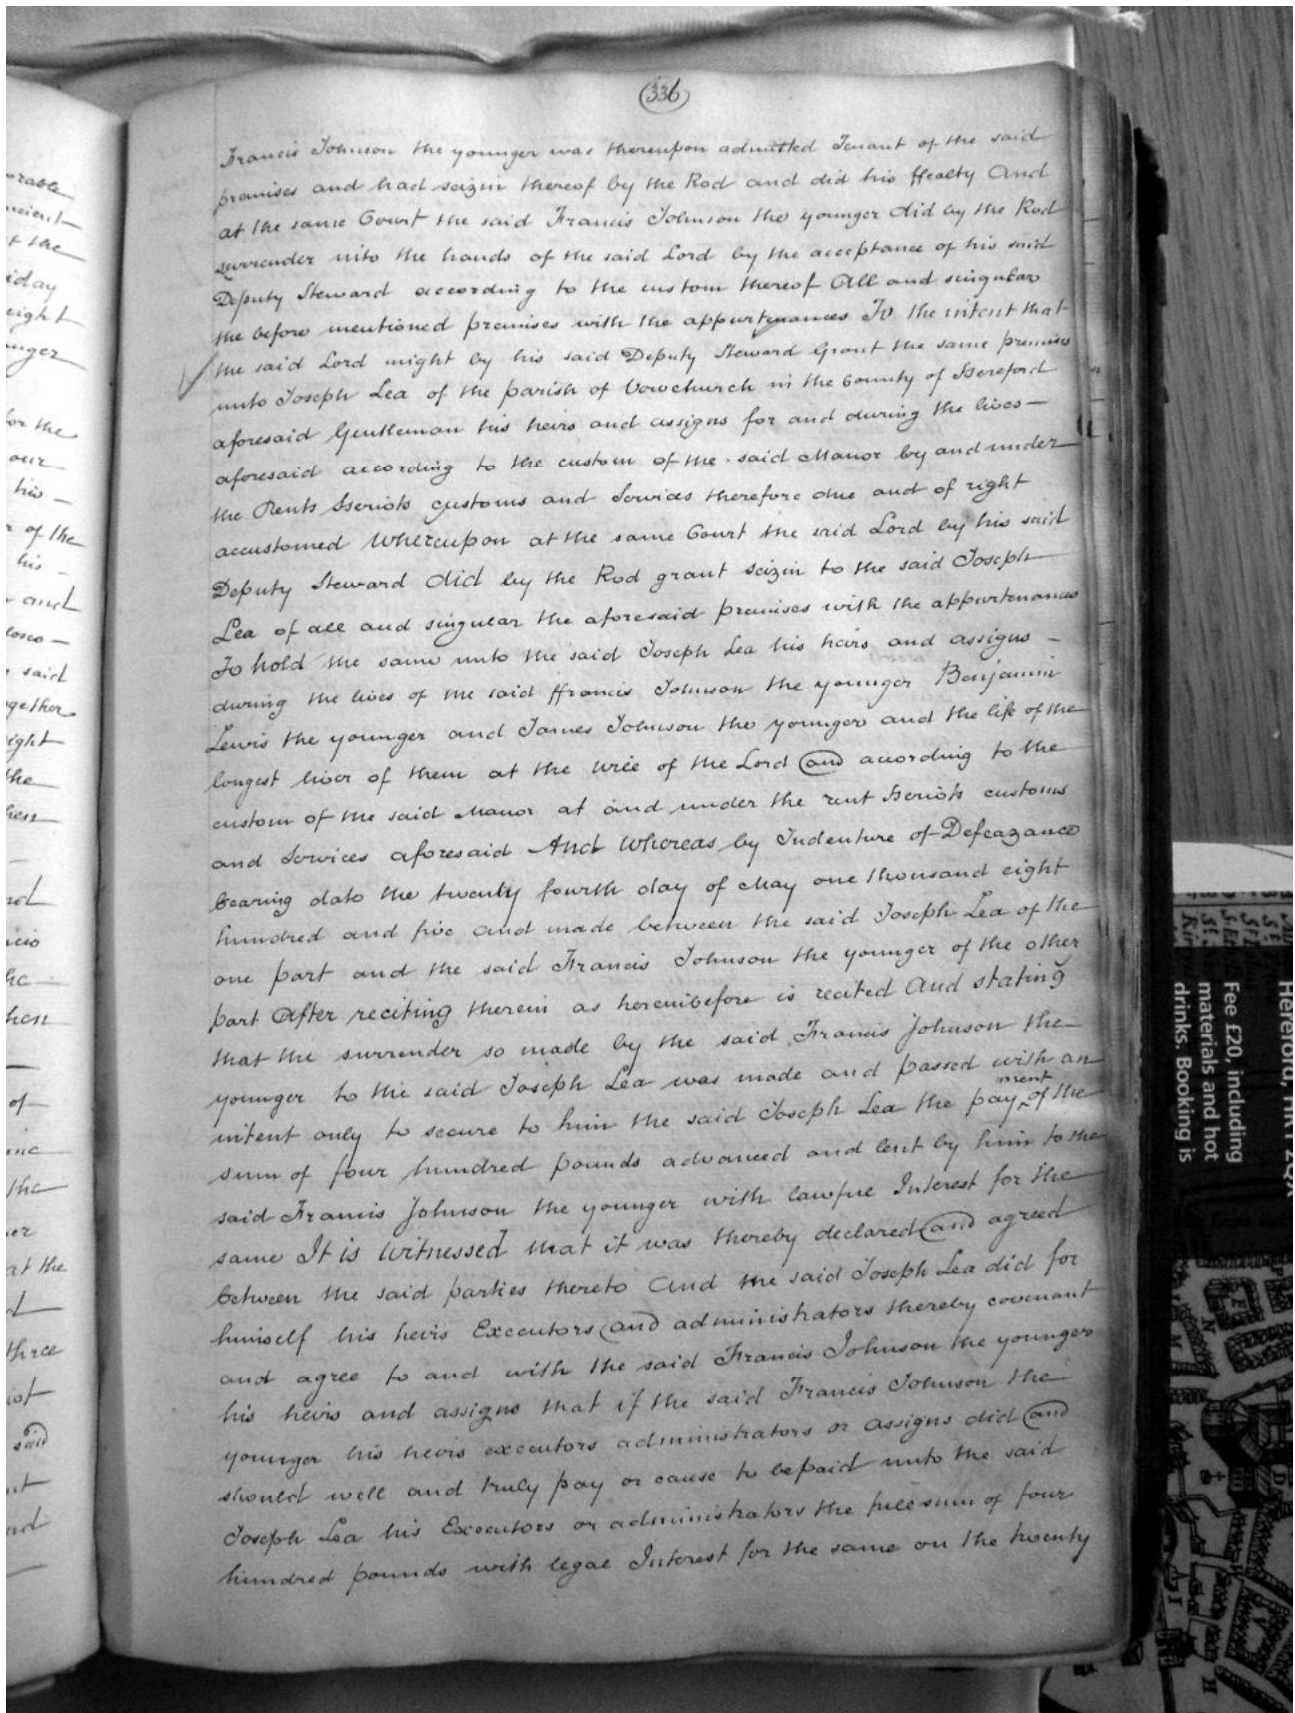 336
Francis Johnson the younger was thereupon admitted Tenant of the said
premises and had seizin thereof by the Rod and did his ffealty And
at the same Court the said Francis Johnson the younger did by the Rod
surrender into the hands of the said Lord by the acceptance of his said
Deputy Steward according to the custom thereof All and singular
the before mentioned premises with the appurtenances To the intent that
the said Lord might by his said Deputy Steward Grant the same premises
unto Joseph Lea of the parish of Vowchurch in the County of Hereford
aforesaid Gentleman his heirs and assigns for and during the lives —
aforesaid according to the custom of the said Manor by and under
the Rents Heriots customs and Services therefore due and of right
accustomed Whereupon at the same Court the said Lord by his said
Deputy Steward did by the Rod grant seizin to the said Joseph
Lea of all and singular the aforesaid premises with the appurtenances
To hold the same unto the said Joseph Lea his heirs and assigns —
during the lives of the said ffrancis Johnson the younger Benjamin
Lewis the younger and James Johnson the younger and the life of the
longest liver of them at the will of the Lord and according to the
custom of the said Manor at and under the rent Heriots customs
and Services aforesaid And Whereas by Indenture of Defeazance
bearing date the twenty fourth day of May one thousand eight
hundred and five and made between the said Joseph Lea of the
one part and the said Francis Johnson the younger of the other
part After reciting therein as hereinbefore is recited And stating
that the surrender so made by the said Francis Johnson the
younger to the said Joseph Lea was made and passed with an
intent only to secure to him the said Joseph Lea the payment of the
sum of four hundred pounds advanced and lent by him to the
said Francis Johnson the younger with lawful Interest for the
same It is Witnessed that it was thereby declared and agreed
between the said parties thereto And the said Joseph Lea did for
himself his heirs Executors and administrators thereby covenant
and agree to and with the said Francis Johnson the younger
his heirs and assigns that if the said Francis Johnson the
younger his heirs executors administrators or assigns did and
should well and truly pay or cause to be paid unto the said
Joseph Lea his Executors or administrators the full sum of four
hundred pounds with legal Interest for the same on the twenty
orable
ncient
t the
iday
eight
unger
for the
our
his —
r of the
his —
and
said
gether
ight
the
of
the
at the
three
said
Hereford, HR1 2QX
Fee £20, including
materials and hot
drinks. Booking is